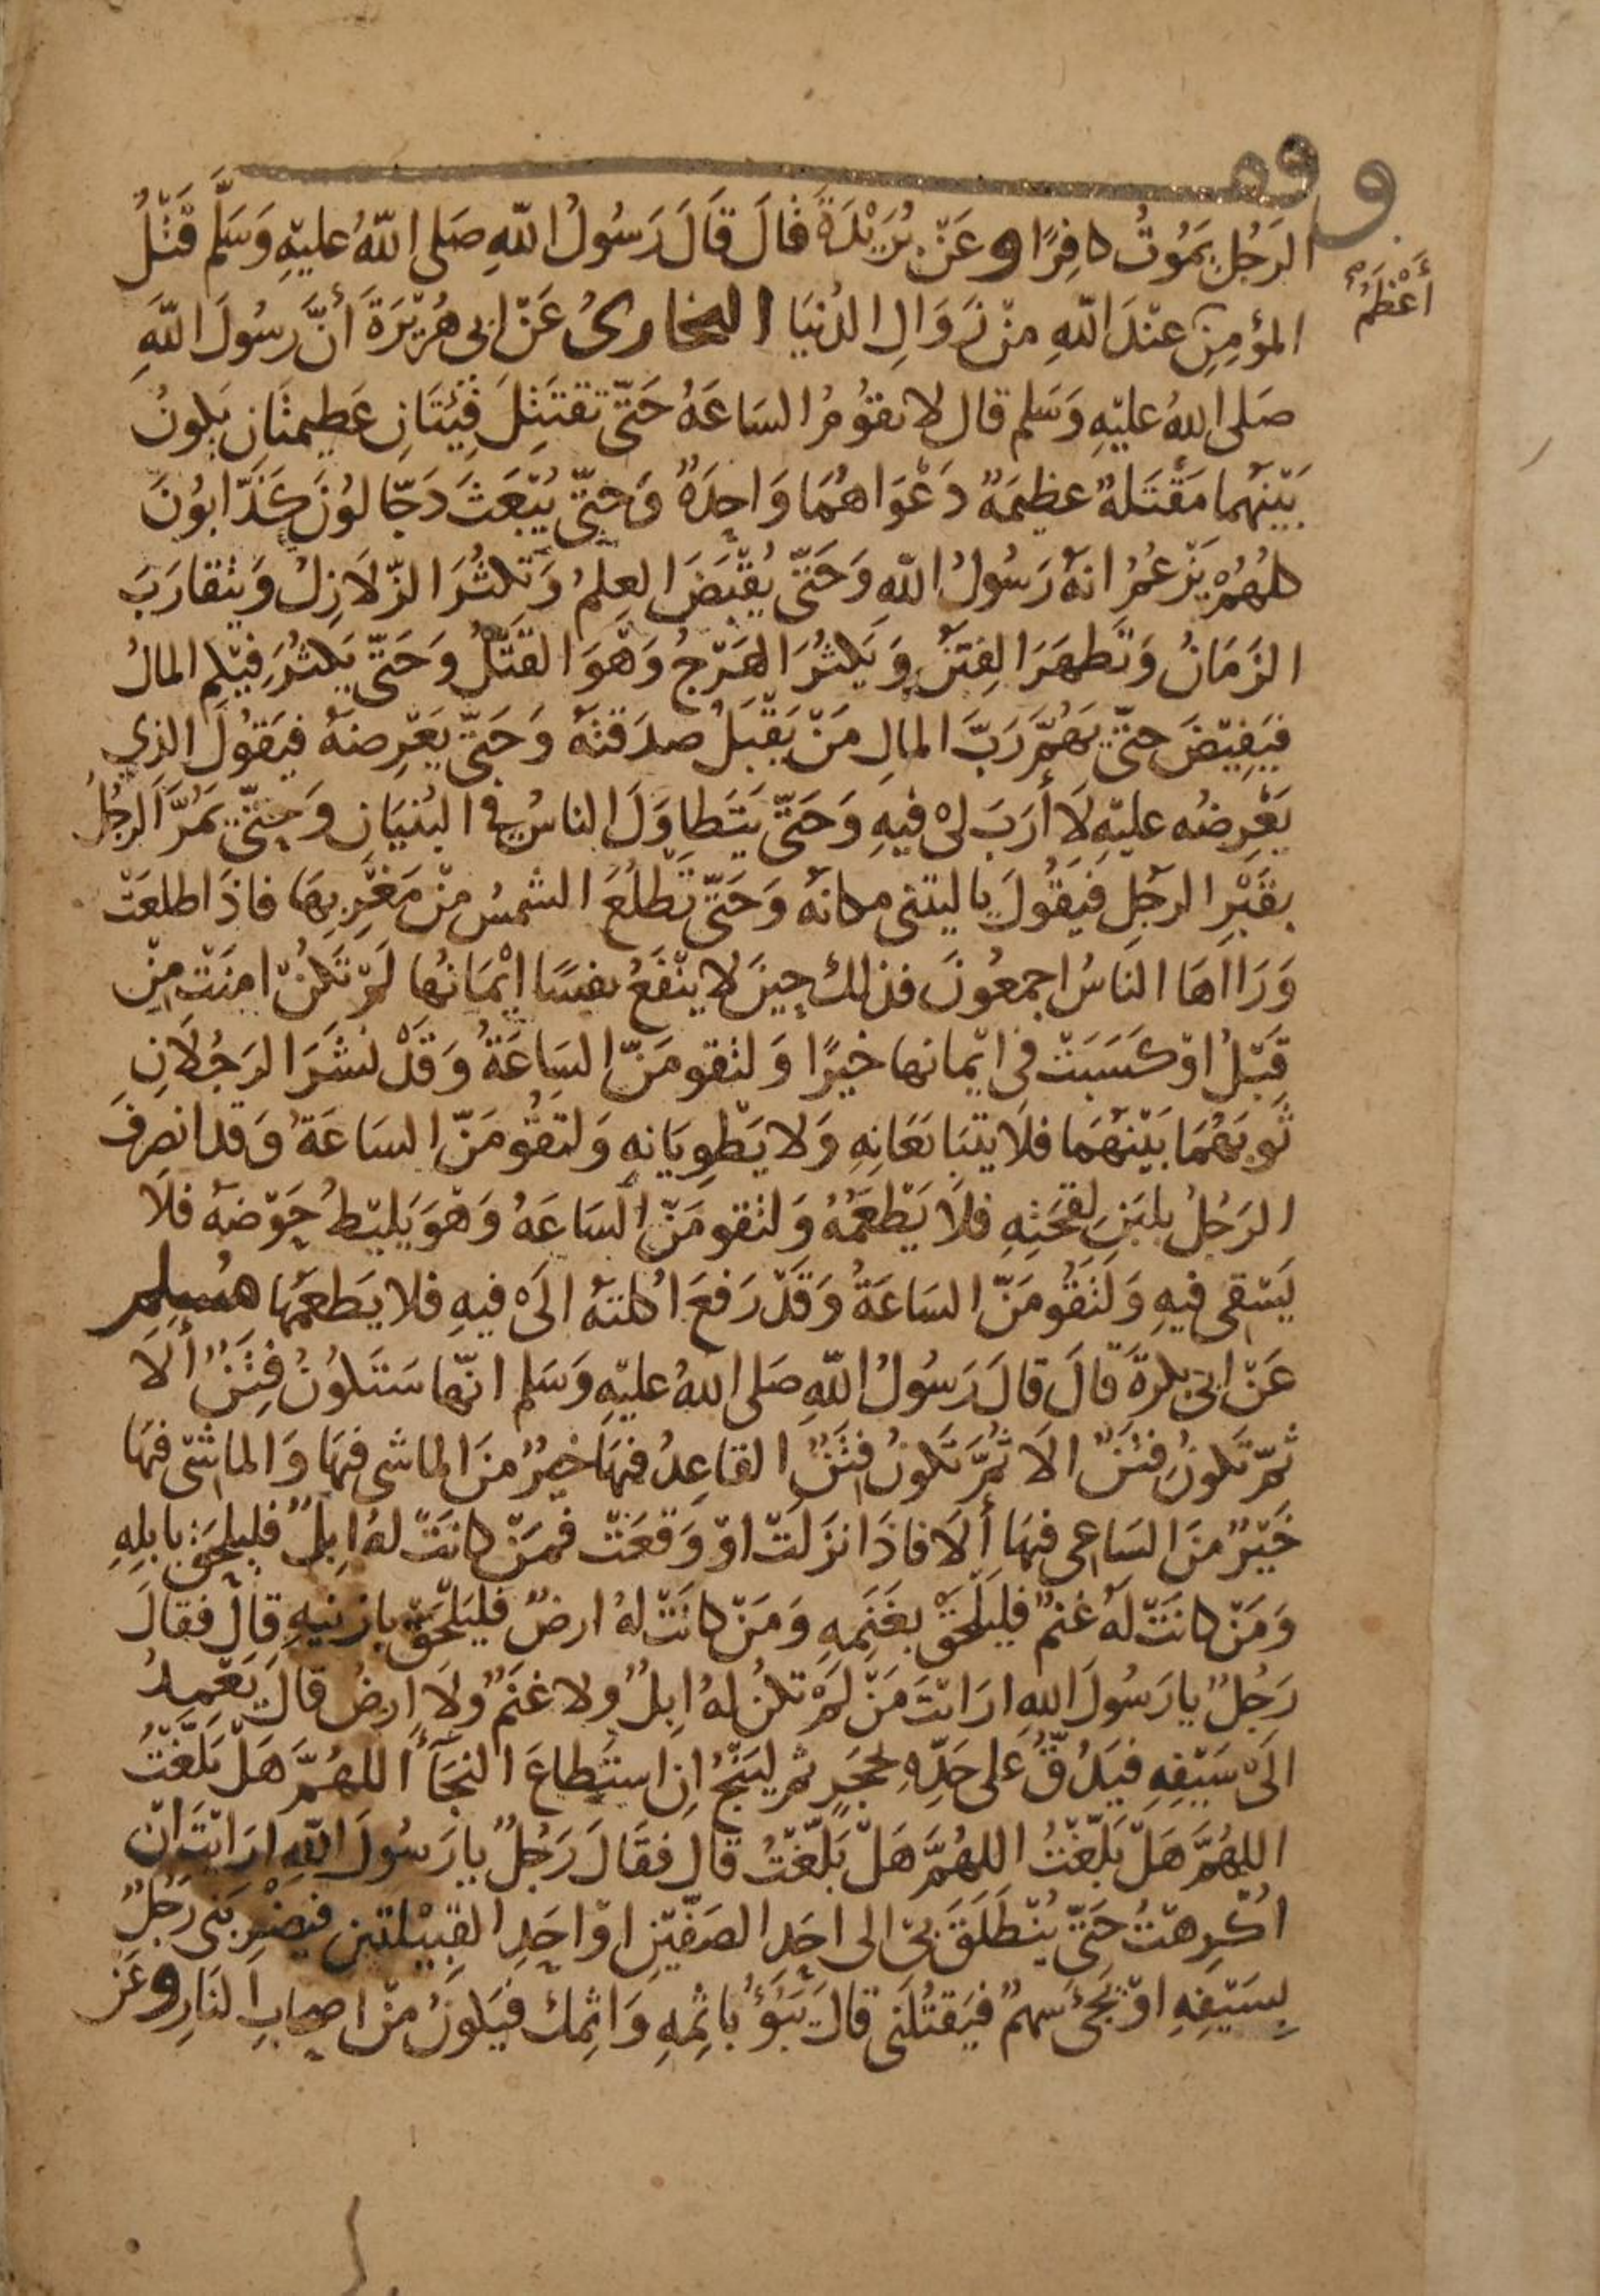 وقف
الرَجُلِ يَمُوتُ كافِرًا وعَنْ بُرَيْدَةَ قالَ قَالَ رَسُولُ اللّهِ صَلى اللّهُ عليْهِ وَسَلَّم قَتْلُ
أَعْظَمُ
المؤمِنِ عنْدَ اللّهِ منْ زَوَالِ الدُنيَا البخارىُ عَنْ ابى هُرَيْرَةَ أنَّ رسُولَ اللّهِ
صَلى اللهُ عليْهِ وَسَلم قال لا تقوُمُ السَاعَهُ حَتّى تقتَتِلَ فِيَتَانِ عَظيمتَانِ يَكونُ
بَيْنهما مَقْتَلةٌ عظيمَةٌ دَعْوَاهُمَا وَاحِدَةٌ وَحتّى يُبْعَثَ دَجّالوُنَ كَذّابوُنَ
كلهُمْ يَزعُمُ انهُ رَسُولُ اللّهِ وَحَتّى يُقْبَضَ العِلمُ وَتكثُرَ الزّلازِلُ وَيتقارَبَ
الزَمَانُ وَتَظهَرَ الفِتَنُ وَيَكثُرَ الهَرْجُ وَهُوَ القَتْلُ وَحَتّى يَكثُرَ فيْكم المالُ
فيَفِيْضَ حتّى يَهُمَّ رَبَّ المالِ مَنْ يَقْبَلُ صدَقتهُ وَحَتّى يَعْرِضهُ فيَقُولَ الذي
يَعْرِضُه عليْهِ لَا أرَبَ لىْ فيْهِ وَحَتّى يَتَطاوَلَ الناسُ فى البُنيَانِ وَحتّى يَمُرَّ الرجُلُ
بقَبْرِ الرجُلِ فيَقُولَ يا ليتنى مكانهُ وَحَتّى تَطْلُعَ الشمسُ منْ مَغْرِبِهَا فاذَا طلعَتْ
وَرَااهَا النَاسُ اجمعُونَ فذلكَ حِينَ لا ينْفَعُ نفسًا ايْمَانُها لَمْ تَكنْ امنَتْ مِنْ
قَبْلُ اوْ كَسَبَتْ فى ايْمانها خيْرًا وَلتقومَنّ السَاعَةُ وَقَدْ نشَرَ الرَجُلَانِ
ثَوبَهُمَا بَيْنهُمَا فلَا يتبَايَعَانِهِ وَلا يَطْوِيَانِهِ وَلتقُومَنّ السَاعَةُ وَقدانصرفَ
الرَجُلُ بلبَنِ لِقحَتِهِ فلَا يَطْعَمُهُ وَلتقومَنّ السَاعَةُ وَهْوَ يَليْطُ حَوْضهُ فلَا
يَسْقى فيْهِ وَلَتقُومَنّ السَاعَةُ وَقَدْ رَفعَ اكلتهُ الَى فيْهِ فلا يَطعمُها مُسْلِم
عَنْ ابى بكرَةَ قَالَ قالَ رَسُولُ اللّهِ صَلى اللهُ عليْهِ وَسَلم انّها سَتَكوُنُ فِتَنٌ ألَا
ثمّ تَكونُ فِتنٌ الَا ثُمَّ تَكونُ فِتَنٌ القاعِدُ فيْهَا خيْرٌ منَ الماشى فيْهَا وَالماشى فيهَا
خَيْرٌ منَ السَاعى فيْهَا ألَا فاذَا نزَلَتْ اوْ وَقَعَتْ فمَنْ كانَتْ لهُ اِبلٌ فليلحَقْ بابلِهِ
وَمَنْ كانَتْ لَهُ غنمٌ فليَلحَقْ بغَنَمِهِ وَمَنْ كانَتْ لهُ ارضٌ فليَلحَقْ بارضِهِ قالَ فقالَ
رَجُلٌ يا رَسُولَ اللهِ ارَايْتَ مَنْ لَمْ تكنُ لهُ اِبلٌ ولا غنَمٌ ولَا ارضٌ قالَ يَعْمِدُ
الَى سَيْفِهِ فيَدُقُّ عَلى حَدِّهِ بحجَرٍ ثم ليَنْجُ اِن استَطاعَ النجَآءَ اللهُمَّ هَلْ بَلّغْتُ
اللهُمَّ هَلْ بَلّغْتُ اللهُمَّ هَلْ بَلّغْتُ قال فقَالَ رَجُلٌ يا رَسُولَ اللّهِ ارَايْتَ انْ
اُكْرِهْتُ حَتّى يُنْطَلَقَ بى الى احَدِ الصَفّيْنِ اوْ احَدِ القبيْلتين فيضْرِبَنى رَجُلٌ
بِسَيْفِهِ اوْ يَجئُ سَهمٌ فيَقتُلَنى قالَ يَبُوْءُ باثمِهِ وَاثمِكَ فيَكونُ منْ اصحابِ النَارِ وعَن